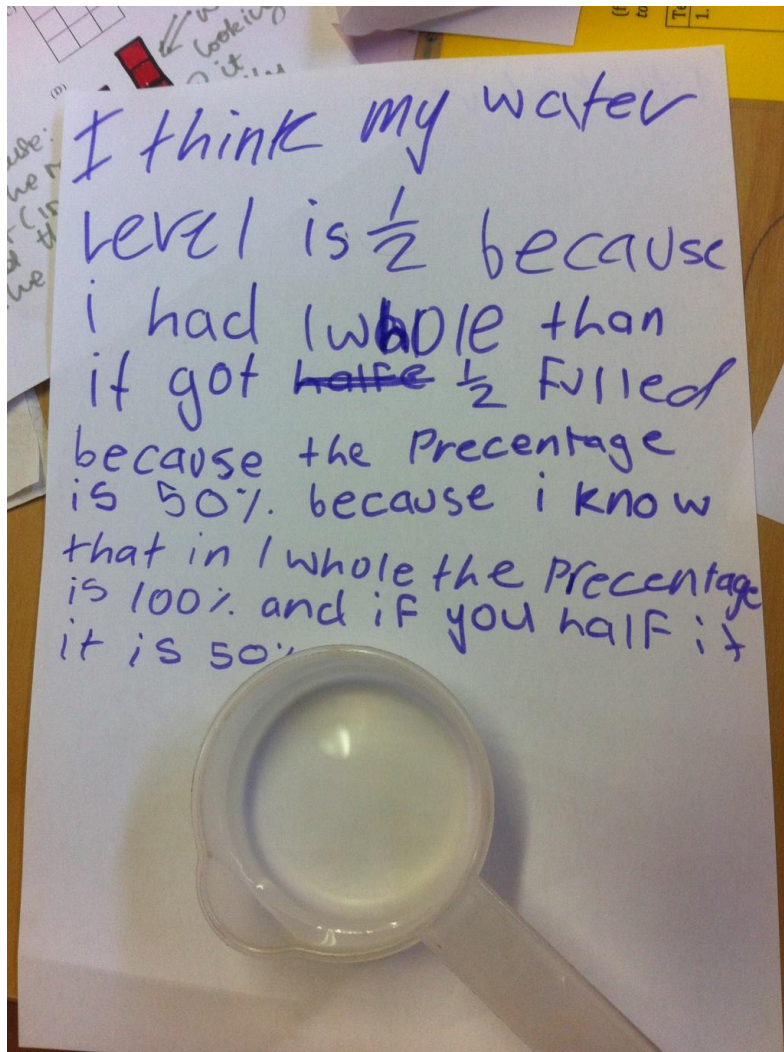 looking
it
I think my water
level is 1/2 because
i had 1 whole than
it got halfe 1/2 fulled
because the Precentage
is 50%. because i know
that in 1 whole the Precentage
is 100% and if you half it
it is 50%